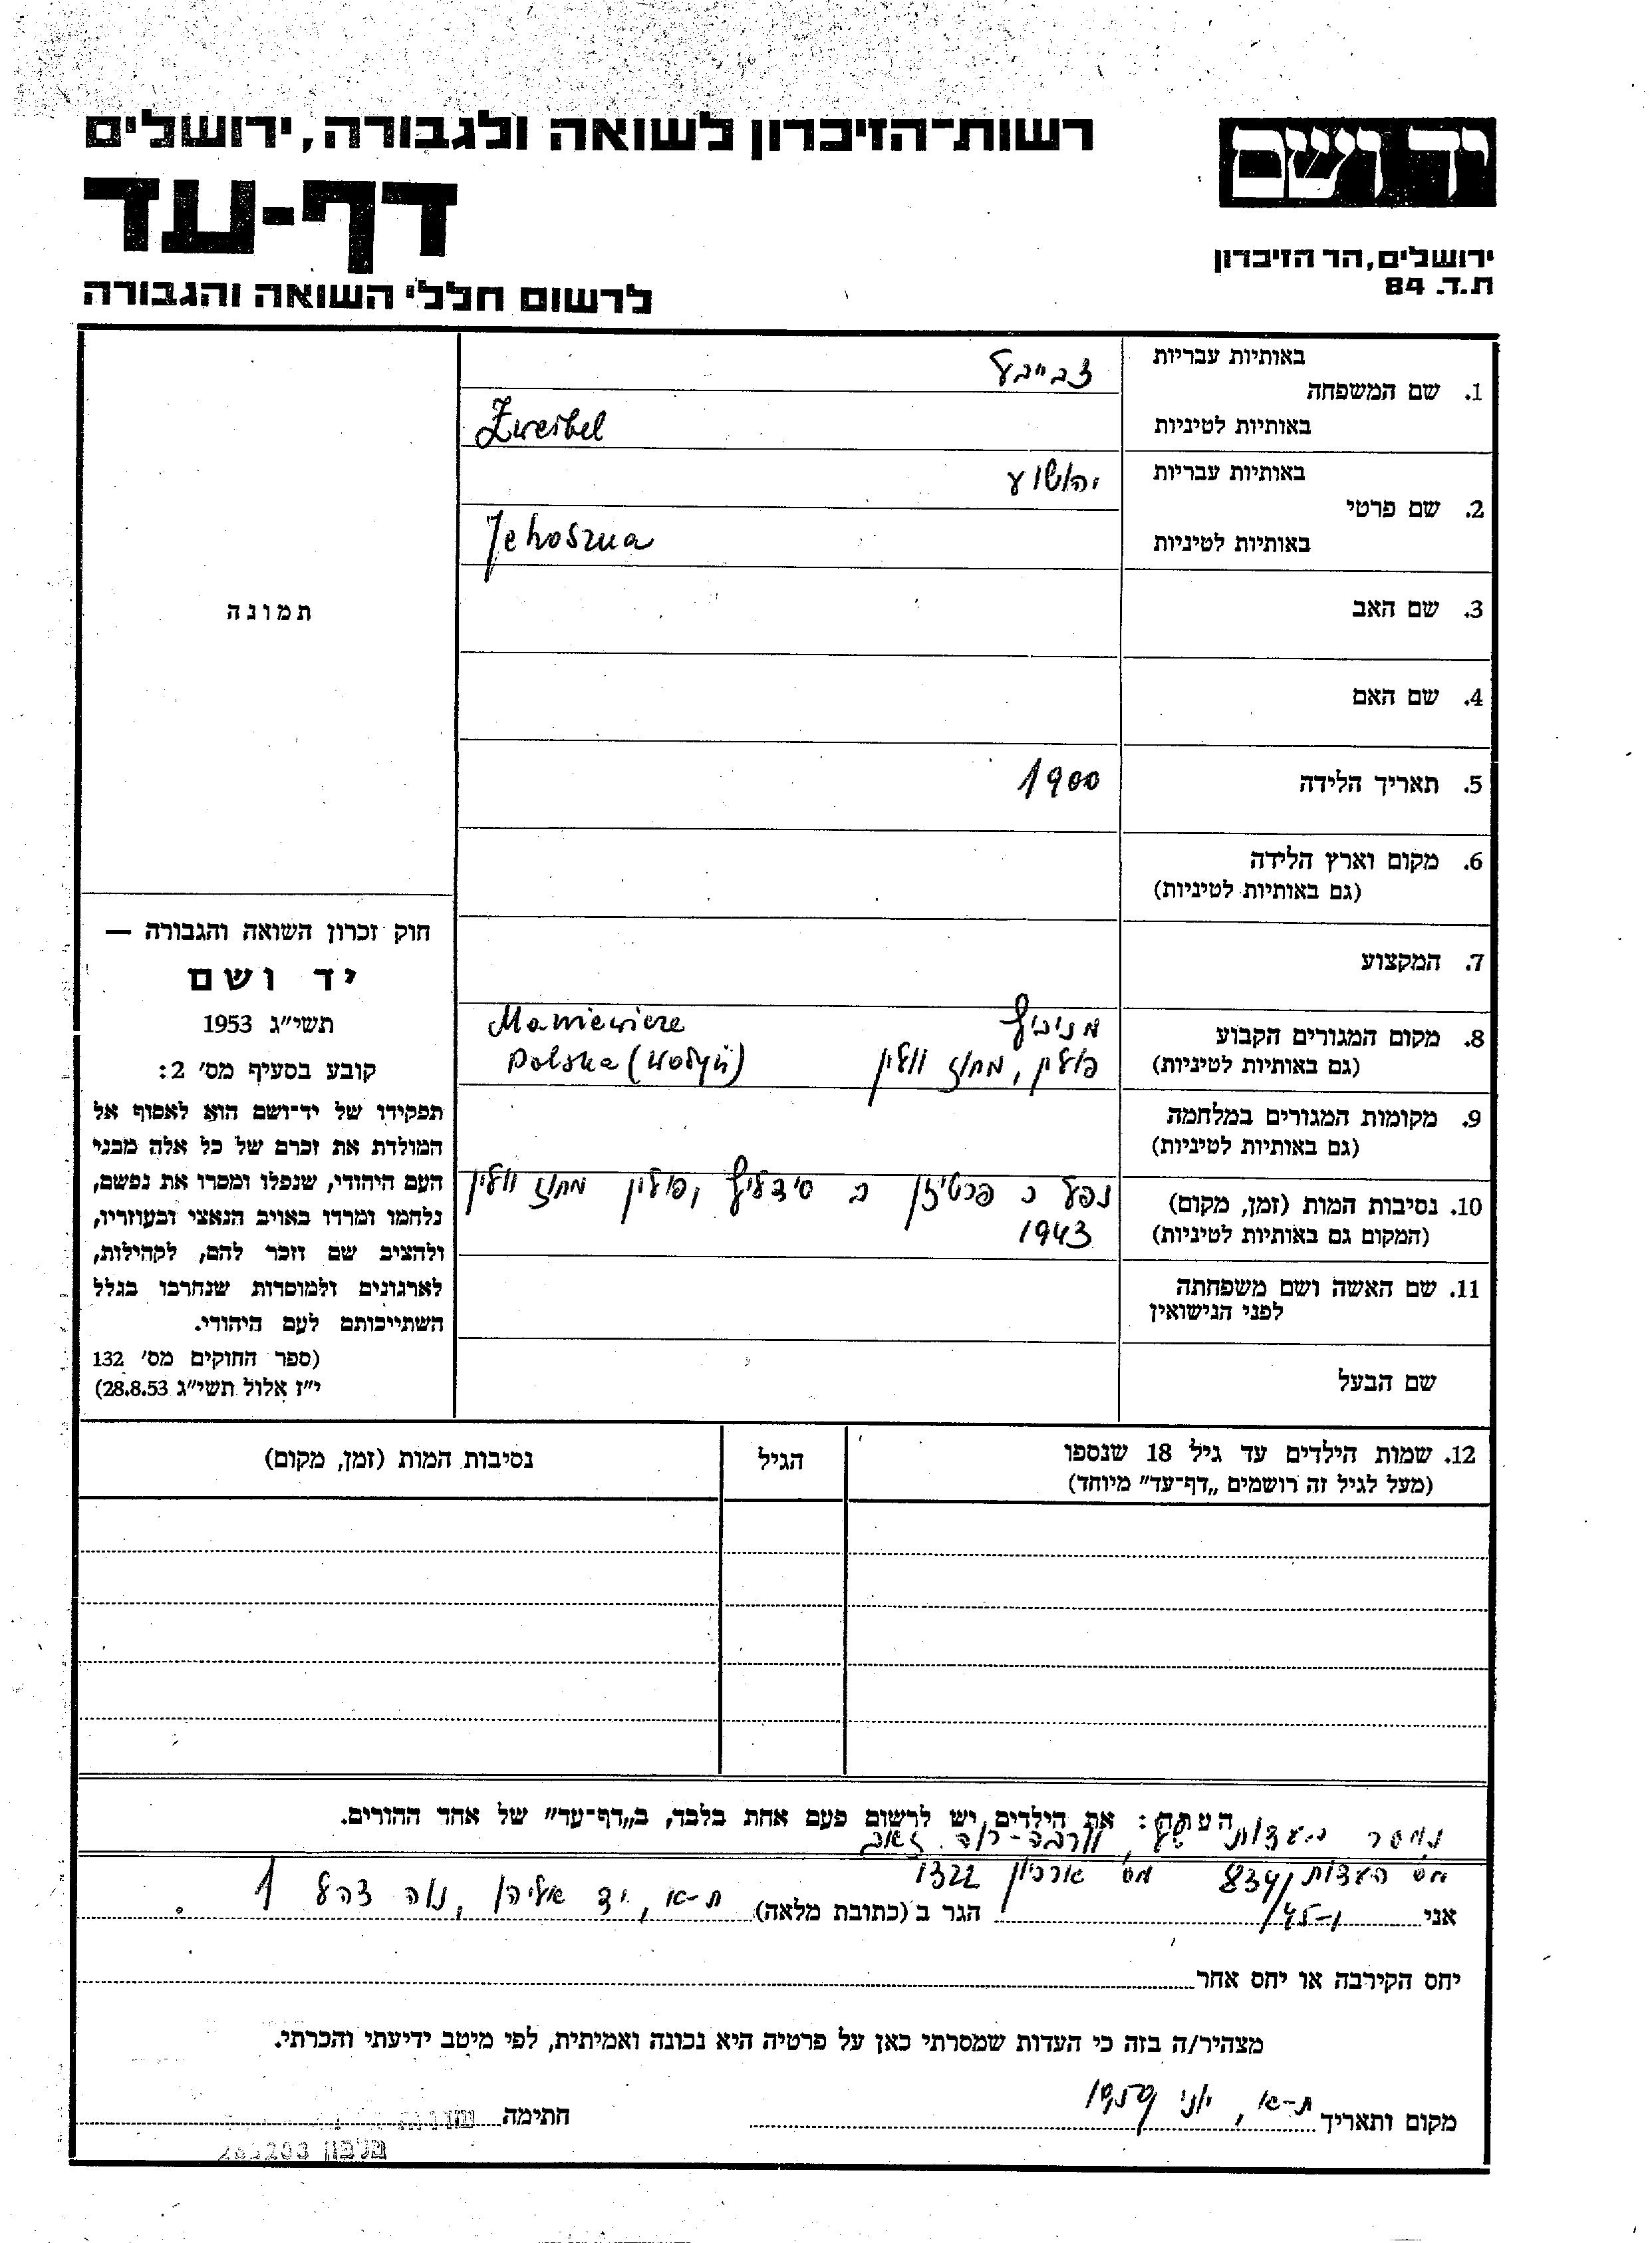 רשות־הזיכרון לשואה ולגבורה, ירושלים
דף-עד
לרשום חללי השואה והגבורה
יד ושם
ירושלים, הר הזיכרון
ת.ד. 84
באותיות עבריות
1. שם המשפחה
באותיות לטיניות
צבייבל
Zweibel
באותיות עבריות
2. שם פרטי
באותיות לטיניות
יהושוע
Jehoszua
3. שם האב
4. שם האם
5. תאריך הלידה
1900
6. מקום וארץ הלידה
(גם באותיות לטיניות)
7. המקצוע
8. מקום המגורים הקבוע
(גם באותיות לטיניות)
מניביץ Maniewicze
פולין, מחוז וולין Polska (Wołyń)
9. מקומות המגורים במלחמה
(גם באותיות לטיניות)
10. נסיבות המות (זמן, מקום)
(המקום גם באותיות לטיניות)
נפל כ פרטיזן ב פולין מחוז וולין
1943
11. שם האשה ושם משפחתה
לפני הנישואין
שם הבעל
תמונה
חוק זכרון השואה והגבורה —
יד ושם
תשי״ג 1953
קובע בסעיף מס׳ 2:
תפקידו של יד־ושם הוא לאסוף אל
המולדת את זכרם של כל אלה מבני
העם היהודי, שנפלו ומסרו את נפשם,
נלחמו ומרדו באויב הנאצי ובעוזריו,
ולהציב שם וזכר להם, לקהילות,
לארגונים ולמוסדות שנחרבו בגלל
השתייכותם לעם היהודי.
(ספר החוקים מס׳ 132
י״ז אלול תשי״ג 28.8.53)
12. שמות הילדים עד גיל 18 שנספו
(מעל לגיל זה רושמים „דף־עד״ מיוחד)
הגיל
נסיבות המות (זמן, מקום)
העתה: את הילדים יש לרשום פעם אחת בלבד, ב„דף־עד״ של אחד ההורים.
נמסר בעדות של זאב
מס׳ העדות 834/ מס׳ ארכיון 1322
אני 1-45/ הגר ב (כתובת מלאה) ת-א, יד אליהו, נוה צהל 1
יחס הקירבה או יחס אחר
מצהיר/ה בזה כי העדות שמסרתי כאן על פרטיה היא נכונה ואמיתית, לפי מיטב ידיעתי והכרתי.
מקום ותאריך ת-א, יוני 1959 חתימה